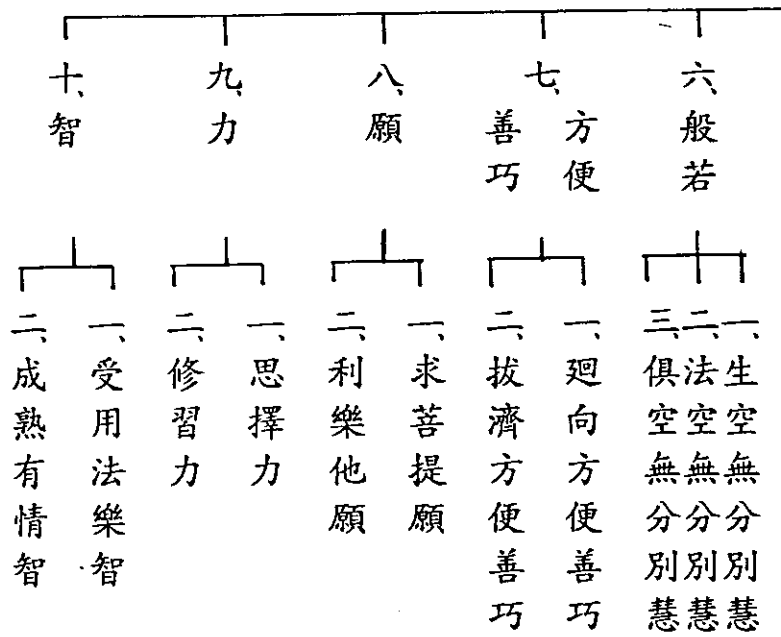 六、般若
一、生空無分別慧
二、法空無分別慧
三、俱空無分別慧
七、方便善巧
一、廻向方便善巧
二、拔濟方便善巧
八、願
一、求菩提願
二、利樂他願
九、力
一、思擇力
二、修習力
十、智
一、受用法樂智
二、成熟有情智